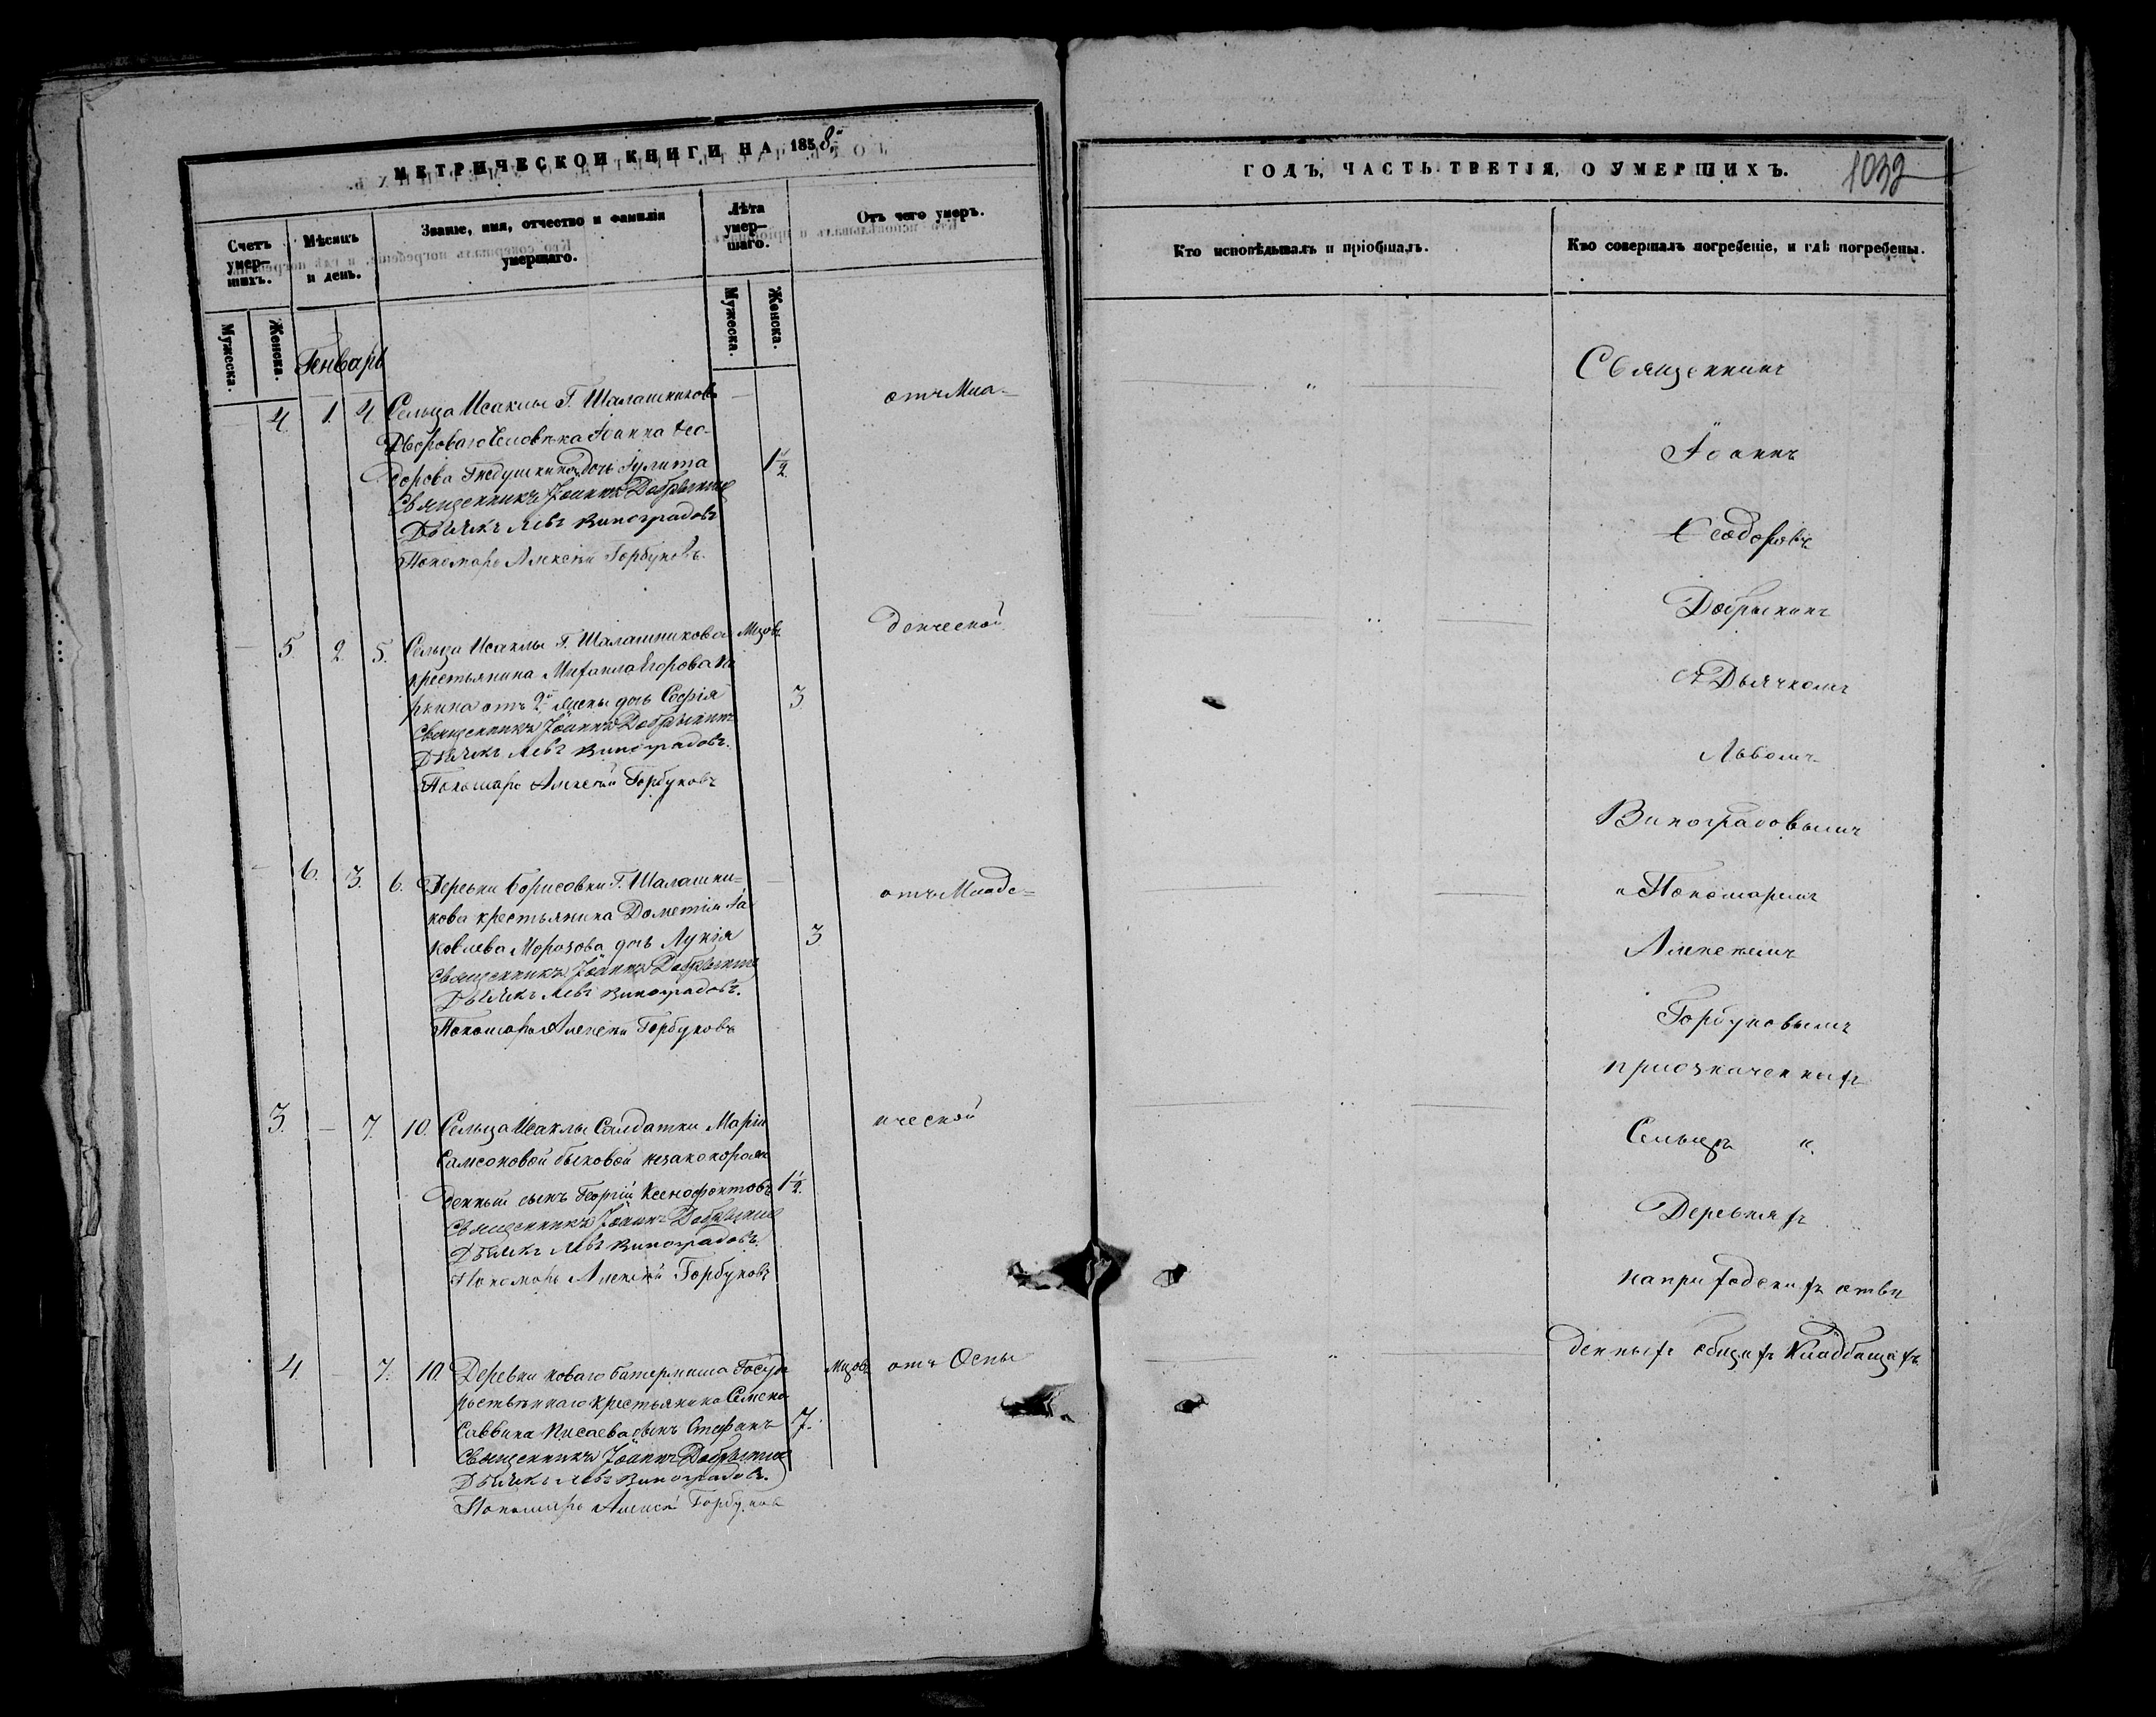 МЕТРИЧЕСКОЙ КНИГИ НА 1858й
Счетъ умер-шихъ.
Мѣсяцъ и день.
Званіе, имя, отчество и фамилія умершаго.
Лѣта умер-шаго.
Отъ чего умеръ.
Мужеска.
Женска.
Мужеска.
Женска.
Генварь
4. 1. 4. Сельца Исаклы Г. Шалашникова отъ Мла-
Двороваго человѣка Іоанна Ѳео-
дорова дочь Іулита 1 1/2.
Священникъ Іоаннъ Добрынинъ
Дьячекъ Левъ Виноградовъ
Пономарь Алексѣй Горбуновъ.
5. 2. 5. Сельца Исаклы Г. Шалашникова Мцовъ денческой
крестьянина Михаила Егорова
отъ 2й жены дочь Софія 3
Священникъ Іоаннъ Добрынинъ
Дьячекъ Левъ Виноградовъ.
Пономарь Алексѣй Горбуновъ
6. 3. 6. Деревни Борисовки Г. Шалашни- отъ Младе-
кова крестьянина Дометія Іа-
ковлева Морозова дочь Лукія 3
Священникъ Іоаннъ Добрынинъ
Дьячекъ Левъ Виноградовъ.
Пономарь Алексѣй Горбуновъ
3. 7. 10. Сельца Исаклы Солдатки Маріи нческой
Самсоновой Быковой незаконорож
денный сынъ Георгій Ксенофонтовъ 1 1/2.
Священникъ Іоаннъ Добрынинъ
Дьячекъ Левъ Виноградовъ.
Пономарь Алексѣй Горбуновъ
4. 7. 10. Деревни новаго батермыша Госуда Мцовъ отъ Оспы
рственнаго крестьянина Семена
Саввина сынъ Стефанъ 7.
Священникъ Іоаннъ Добрынинъ
Дьячекъ Левъ Виноградовъ.
Пономарь Алексѣй Горбуновъ
ГОДЪ, ЧАСТЬ ТРЕТІЯ, О УМЕРШИХЪ.
1032
Кто исповѣдывалъ и пріобщалъ.
Кто совершалъ погребеніе, и гдѣ погребены.
Священникъ
Іоаннъ
Ѳеодоровъ
Добрынинъ
съ Дьячкомъ
Львомъ
Виноградовымъ
и Пономаремъ
Алексѣемъ
Горбуновымъ
приозначенныхъ
Сельцѣ
Деревняхъ
наприходскихъ отве
денныхъ общихъ Кладбищахъ